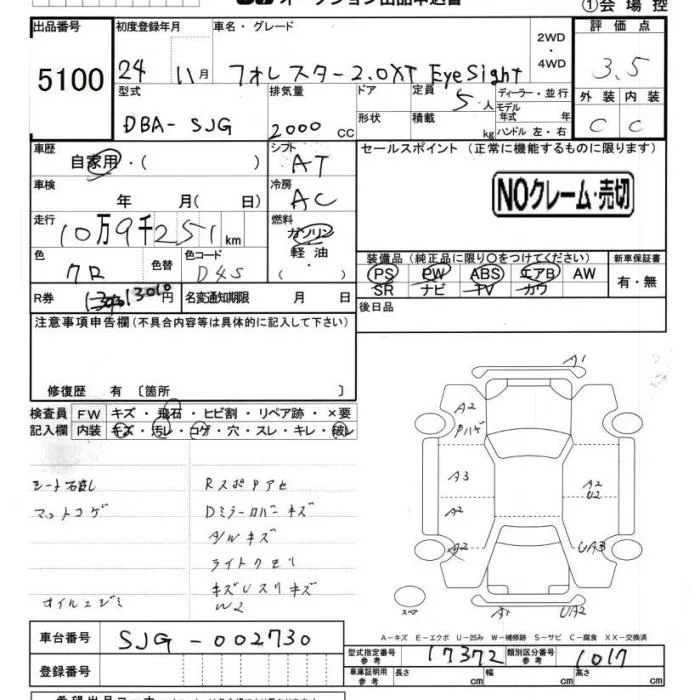 ①会場控
出品番号 初度登録年月 車名・グレード 2WD・4WD 評価点
5100 24 11月 フォレスター2.0XT EyeSight 3.5
型式 排気量 ドア 定員 5人 ディーラー・並行 外装 内装
DBA-SJG 2000 CC 形状 積載 kg モデル年式 年 ハンドル 左・右 C C
車歴 自家用・( ) シフト AT セールスポイント (正常に機能するものに限ります)
車検 年 月( 日) 冷房 AC NOクレーム・売切
走行 10万9千251km 燃料 ガソリン 軽油・( )
装備品(純正品に限り○をつけてください) 新車保証書
色 色替 カラーコード D4S PS PW ABS エアB AW 有・無
SR ナビ TV カワ
R券 13010円 名変通知期限 月 日 後日品
注意事項申告欄(不具合内容等は具体的に記入して下さい)
修復歴 有 [箇所 ]
検査員 FW キズ・飛石・ヒビ割・リペア跡・×要
記入欄 内装 キズ・汚レ・コゲ・穴・スレ・キレ・破レ
A1
A2
Pハゲ
A3
A2
A2
A2
U2
UA3
A1
UA2
スペア
マットコゲ
Dミラーカバーキズ
A/Wキズ
W2
A-キズ E-エクボ U-凹み W-補修跡 S-サビ C-腐食 XX-交換済
車台番号 SJG-002730
型式指定番号 参考 17372 類別区分番号 参考 1017
登録番号 車庫証明用 参考 長さ cm 幅 cm 高さ cm